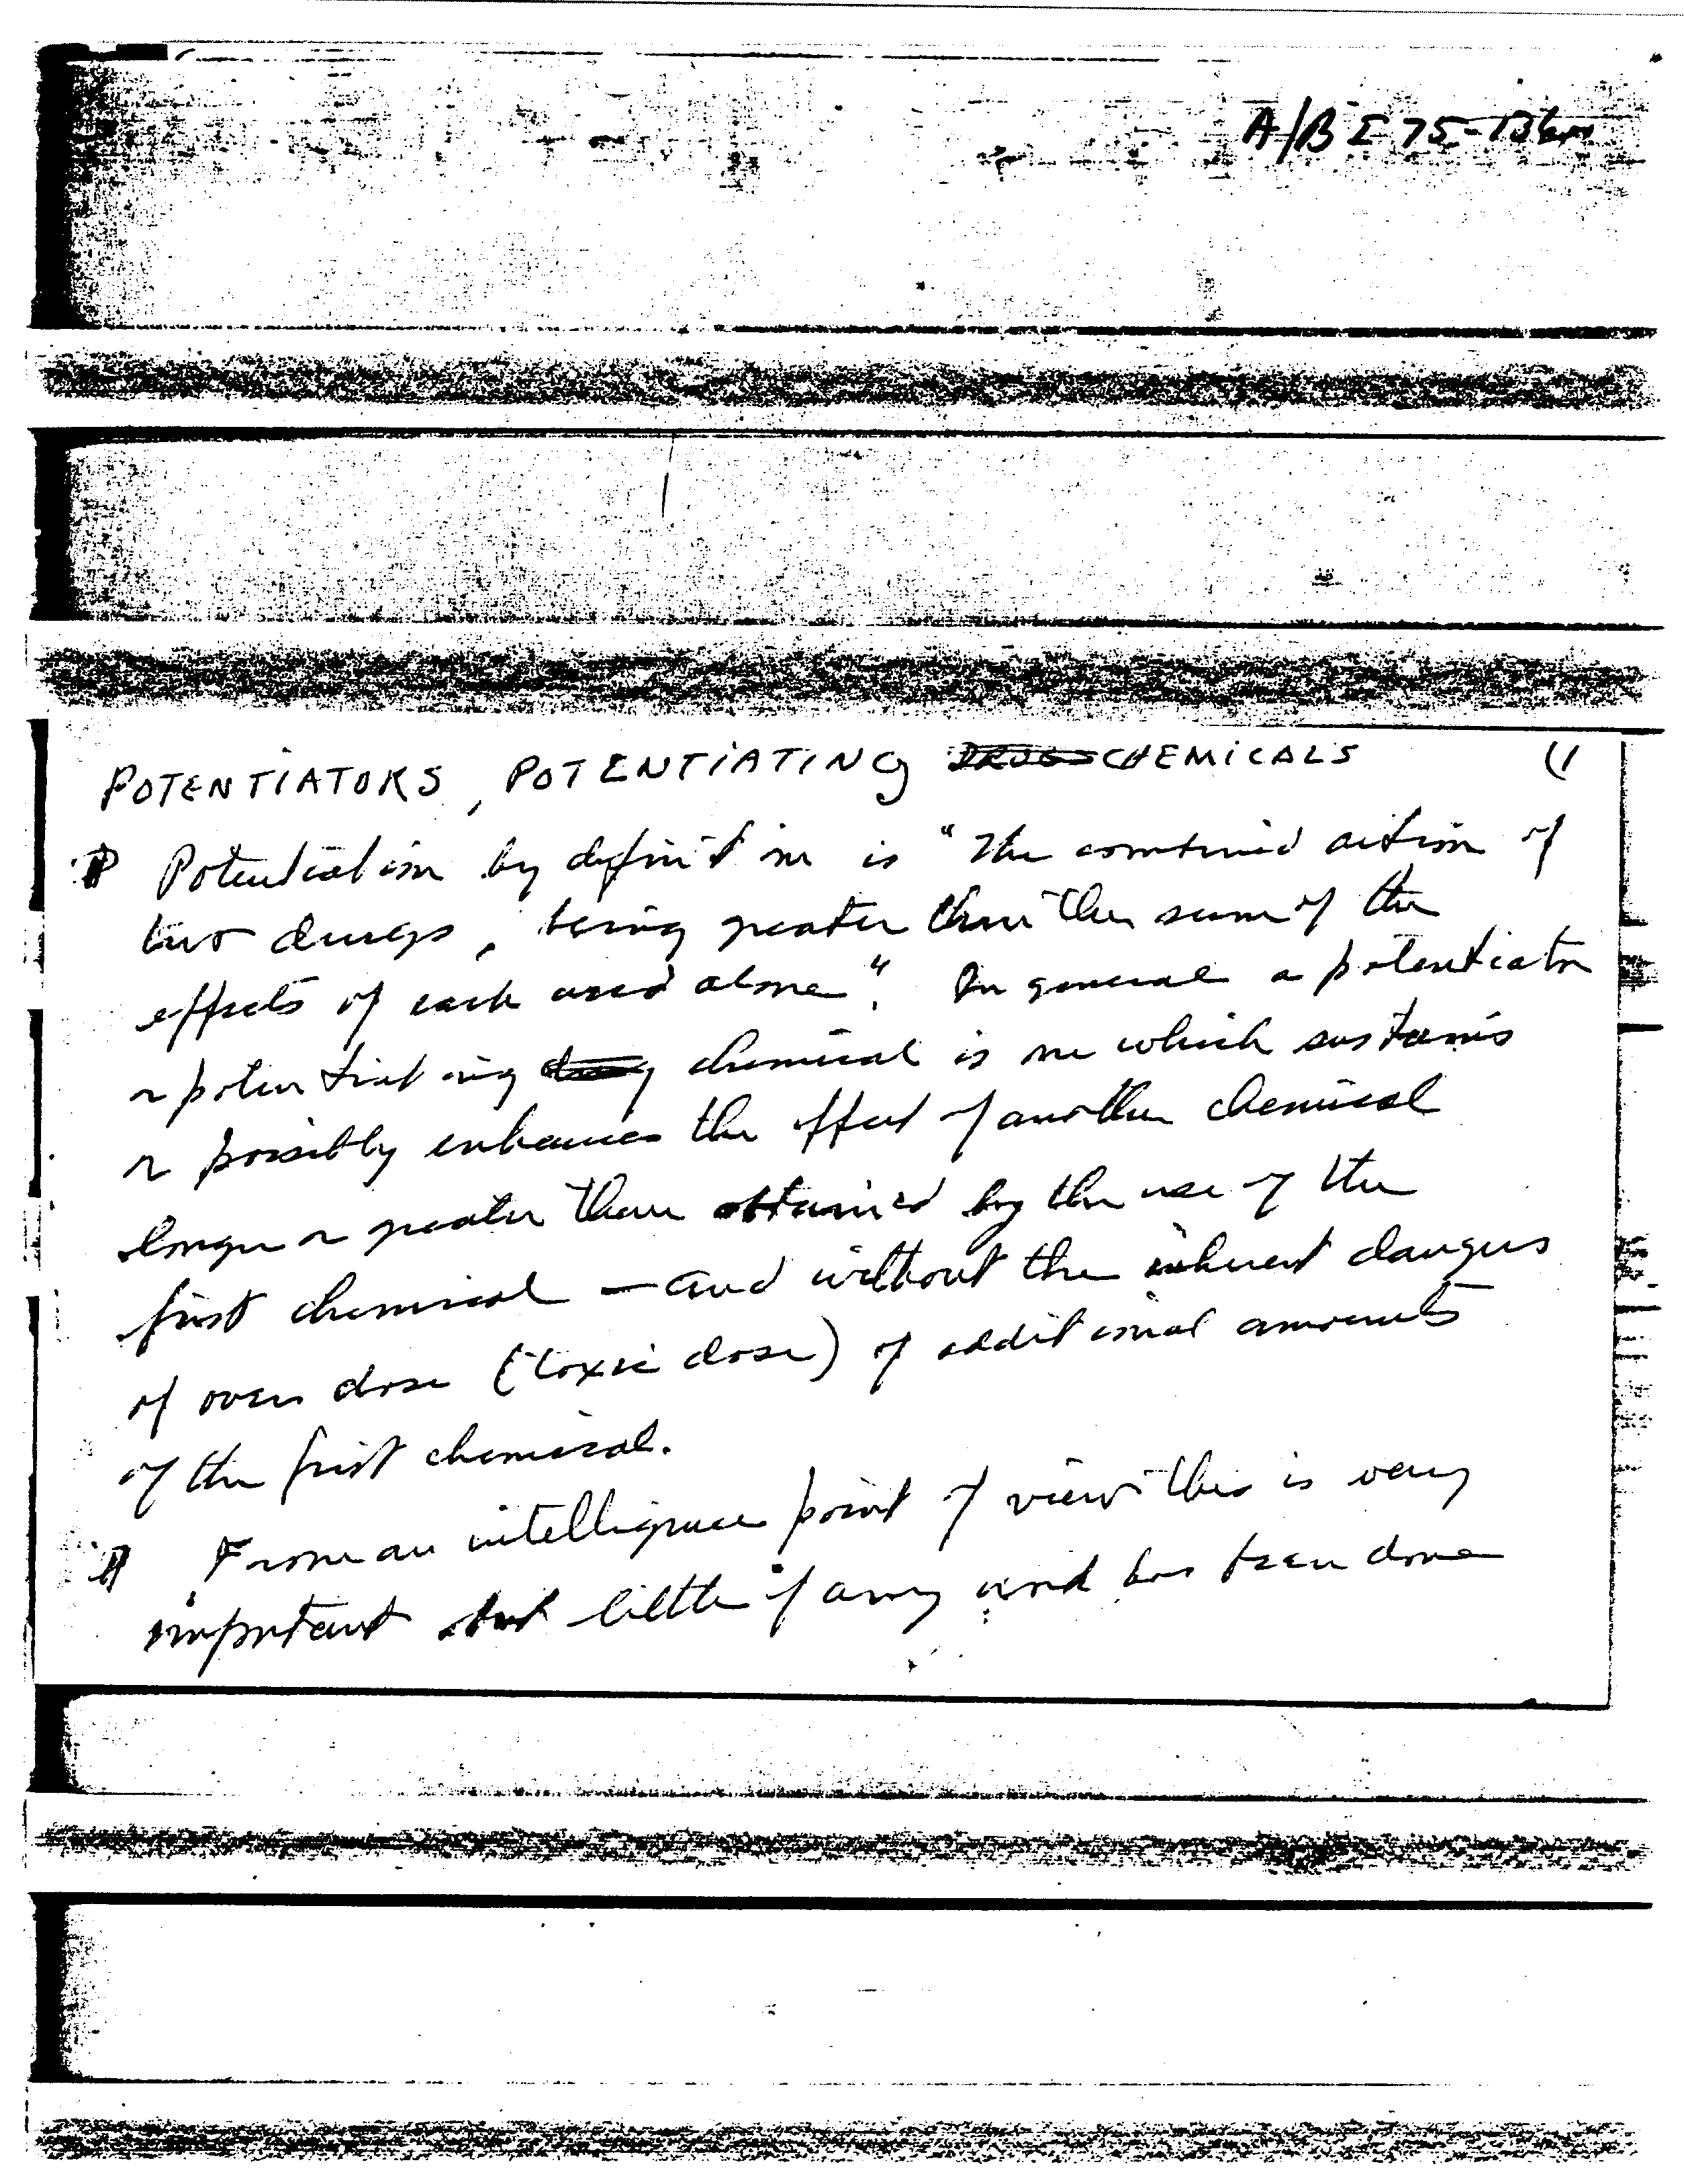 A/B I 75-136m
POTENTIATORS, POTENTIATING DRUGS CHEMICALS (1
Potentiation by definition is "The combined action of
two drugs, being greater than the sum of the
effects of each used alone". In general a potentiator
or potentiating drug chemical is one which sustains
or possibly enhances the effect of another chemical
longer or greater than obtained by the use of the
first chemical — and without the inherent dangers
of over dose (toxic dose) of additional amounts
of the first chemical.
From an intelligence point of view this is very
important but little if any work has been done